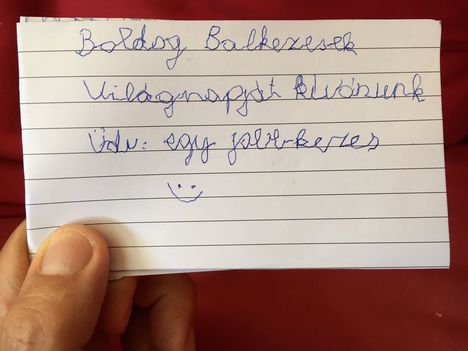 Boldog Balkezesek
Világnapját kívánunk
Üdv: egy jobb-kezes